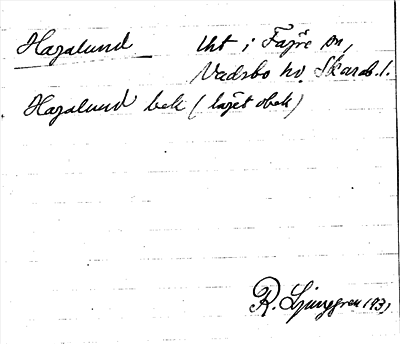 Hagalund lht i Fägre sn,
Vadsbo hd. Skarab. l.
Hagalund bek (läget obek)
R. Ljunggren 193